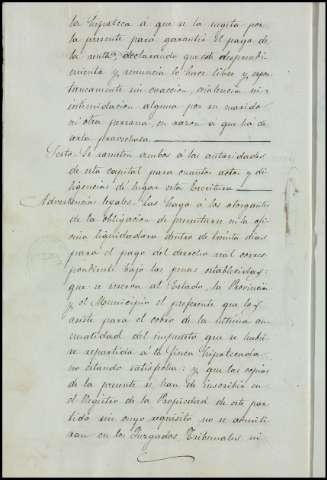 la hipoteca á que se la sujeta por
la presente para garantir el pago de
la renta, declarando que este desprendi-
miento y renuncia lo hace libre y espon-
taneamente sin coaccion, violencia ni
intimidacion alguna por su marido
ni otra persona, en razon a que ha de
serla provechosa.
Sexto. Se someten ambos á las autoridades
de esta capital para cuantos actos y di-
ligencias dé lugar esta Escritura
Advertencias legales. Las hago á los otorgantes
de la obligacion de presentarse en la ofi-
cina liquidadora dentro de treinta dias
para el pago del derecho real corres-
pondiente bajo las penas establecidas:
que se reserva al Estado, la Provincia
y el Municipio el preferente que les
asiste para el cobro de la última an-
malidad del impuesto que se hubie-
se repartido á la finca hipotecada
no estando satisfecha: y que las copias
de la presente se han de inscribir en
el Registro de la Propiedad de este par-
tido sin cuyo requisito no se admiti-
ran en los Juzgados, Tribunales ni